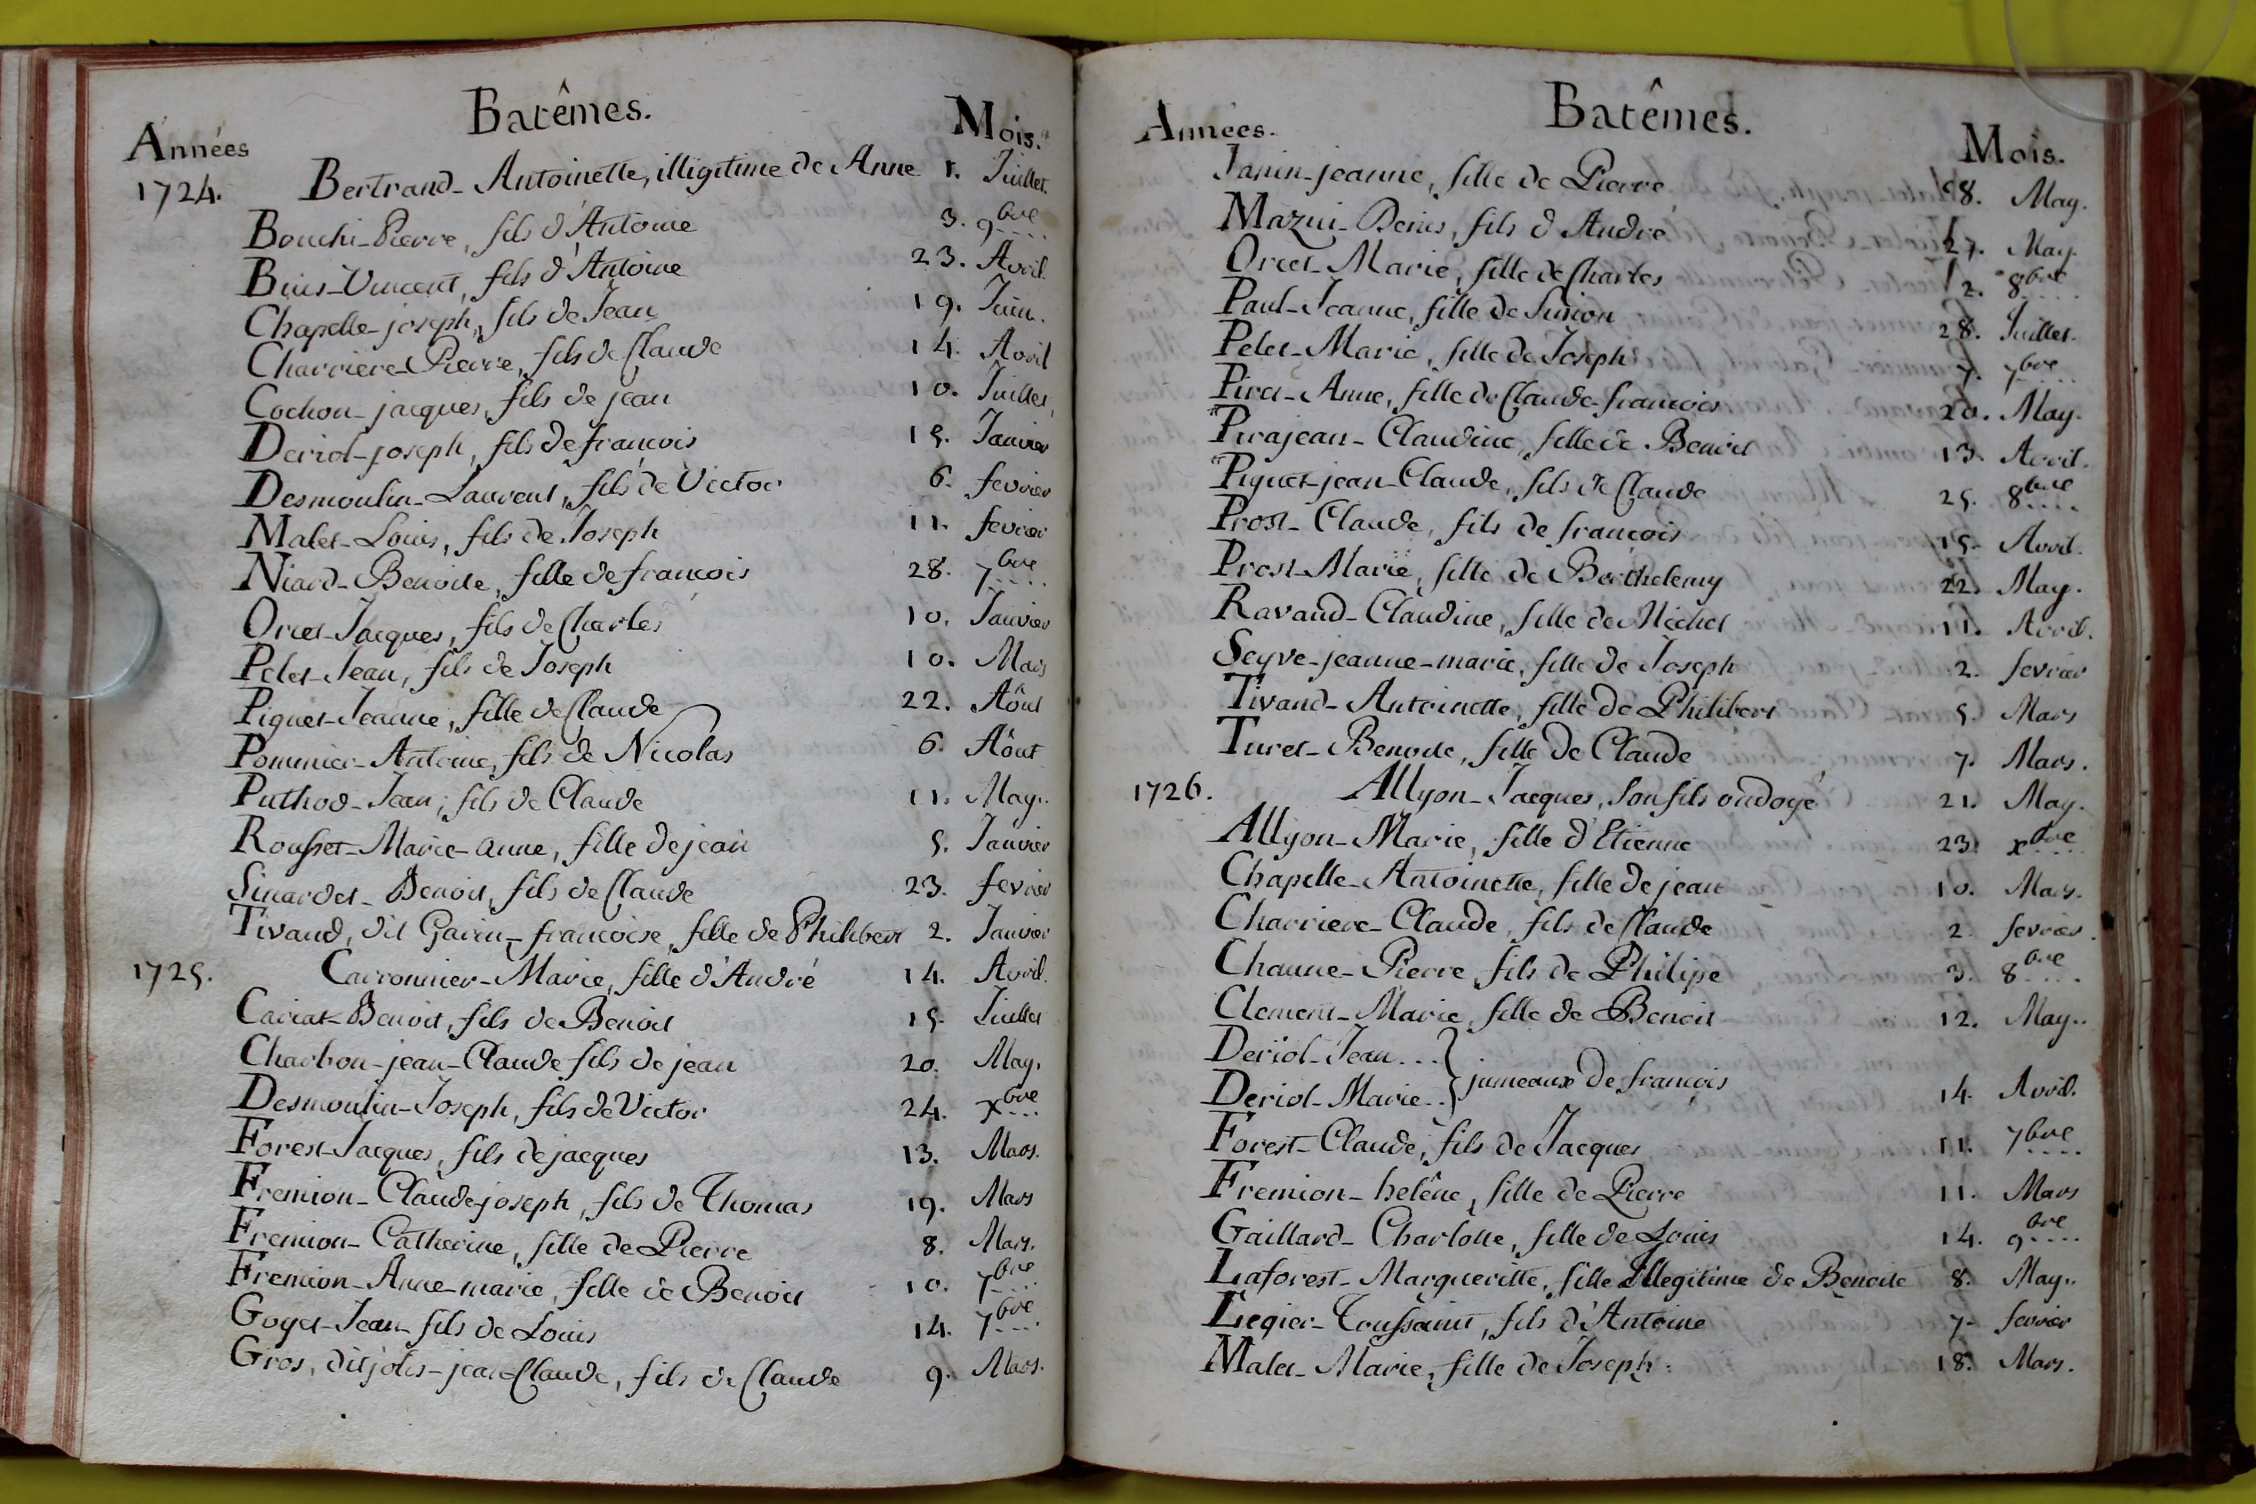 Batêmes.
Années Mois.
1724. Bertrand-Antoinette, illigitime de Anne 1. Juillet.
Bouchi-Pierre, fils d'Antoine 3. 9bre
Buis-Vincent, fils d'Antoine 23. Avril.
Chapelle-joseph, fils de Jean 19. Juin.
Charriere-Pierre, fils de Claude 14. Avril
Cochon-jacques, fils de jean 10. Juillet,
Deriol-joseph, fils de francois 15. Janvier
Desmoulin-Laurent, fils de Victor 6. fevrier
Malet-Louis, fils de Joseph 11. fevrier
Niard-Benoite, fille de francois 28. 7bre
Orcet-Jacques, fils de Charles 10. Janvier
Pelet-Jean, fils de Joseph 10. Mars
Piquet-Jeanne, fille de Claude 22. Aôut
Pommier-Antoine, fils de Nicolas 6. Aôut
Puthod-Jean, fils de Claude 11. May..
Rousset-Marie-anne, fille de jean 5. Janvier
Sinardet-Benoit, fils de Claude 23. fevrier
Tivand, dit Gairin-francoise, fille de Philibert 2. Janvier
1725. Carronnier-Marie, fille d'André 14. Avril.
Cariat-Benoit, fils de Benoit 15. Juillet
Charbon-jean-Claude fils de jean 20. May.
Desmoulin-Joseph, fils de Victor 24. xbre
Forest-Jacques, fils de jacques 13. Mars.
Fremion-Claude joseph, fils de Thomas 19. Mars
Fremion-Catherine, fille de Pierre 8. Mars.
Fremion-Anne-marie, fille de Benoit 10. 7bre
Goyet-Jean-fils de Louis 14. 7bre
Gros, dit jolis-jean Claude, fils de Claude 9. Mars.
Batêmes.
Années. Mois.
Janin-jeanne, fille de Pierre 28. May.
Mazui-Denis, fils d'André 27. May.
Orcet-Marie, fille de Charles 2. 8bre
Paul-Jeanne, fille de Simon 28. Juillet.
Pelet-Marie, fille de Joseph 7. 7bre
Piret-Anne, fille de Claude-francois 20. May.
Pirajean-Claudine, fille de Benoit 13. Avril.
Piquet-jean-Claude, fils de Claude 25. 8bre
Prost-Claude, fils de françois 15. Avril.
Prost-Marie, fille de Berthelemy 22. May.
Ravand-Claudine, fille de Michel 11. Avril.
Seyve-jeanne-marie, fille de Joseph 2. fevrier
Tivand-Antoinette, fille de Philibert 5. Mars
Turet-Benoite, fille de Claude 7. Mars.
1726. Allyon-Jacques, son fils ondoyé 21. May.
Allyon-Marie, fille d'Etienne 23. xbre
Chapelle-Antoinette, fille de jean 10. Mars.
Charriere-Claude, fils de Claude 2. fevrier.
Channe-Pierre, fils de Philipe 3. 8bre
Clement-Marie, fille de Benoit 12. May..
Deriol-Jean...
} jumeaux de françois
Deriol-Marie.. 14. Avril.
Forest-Claude, fils de Jacques 11. 7bre
Fremion-helêne, fille de Pierre 11. Mars
Gaillard-Charlotte, fille de Louis 14. 9bre
Laforest-Margueritte, fille Illegitime de Benoite 8. May..
Liegier-Toussaint, fils d'Antoine 7. fevrier
Malet-Marie, fille de Joseph. 18. Mars.